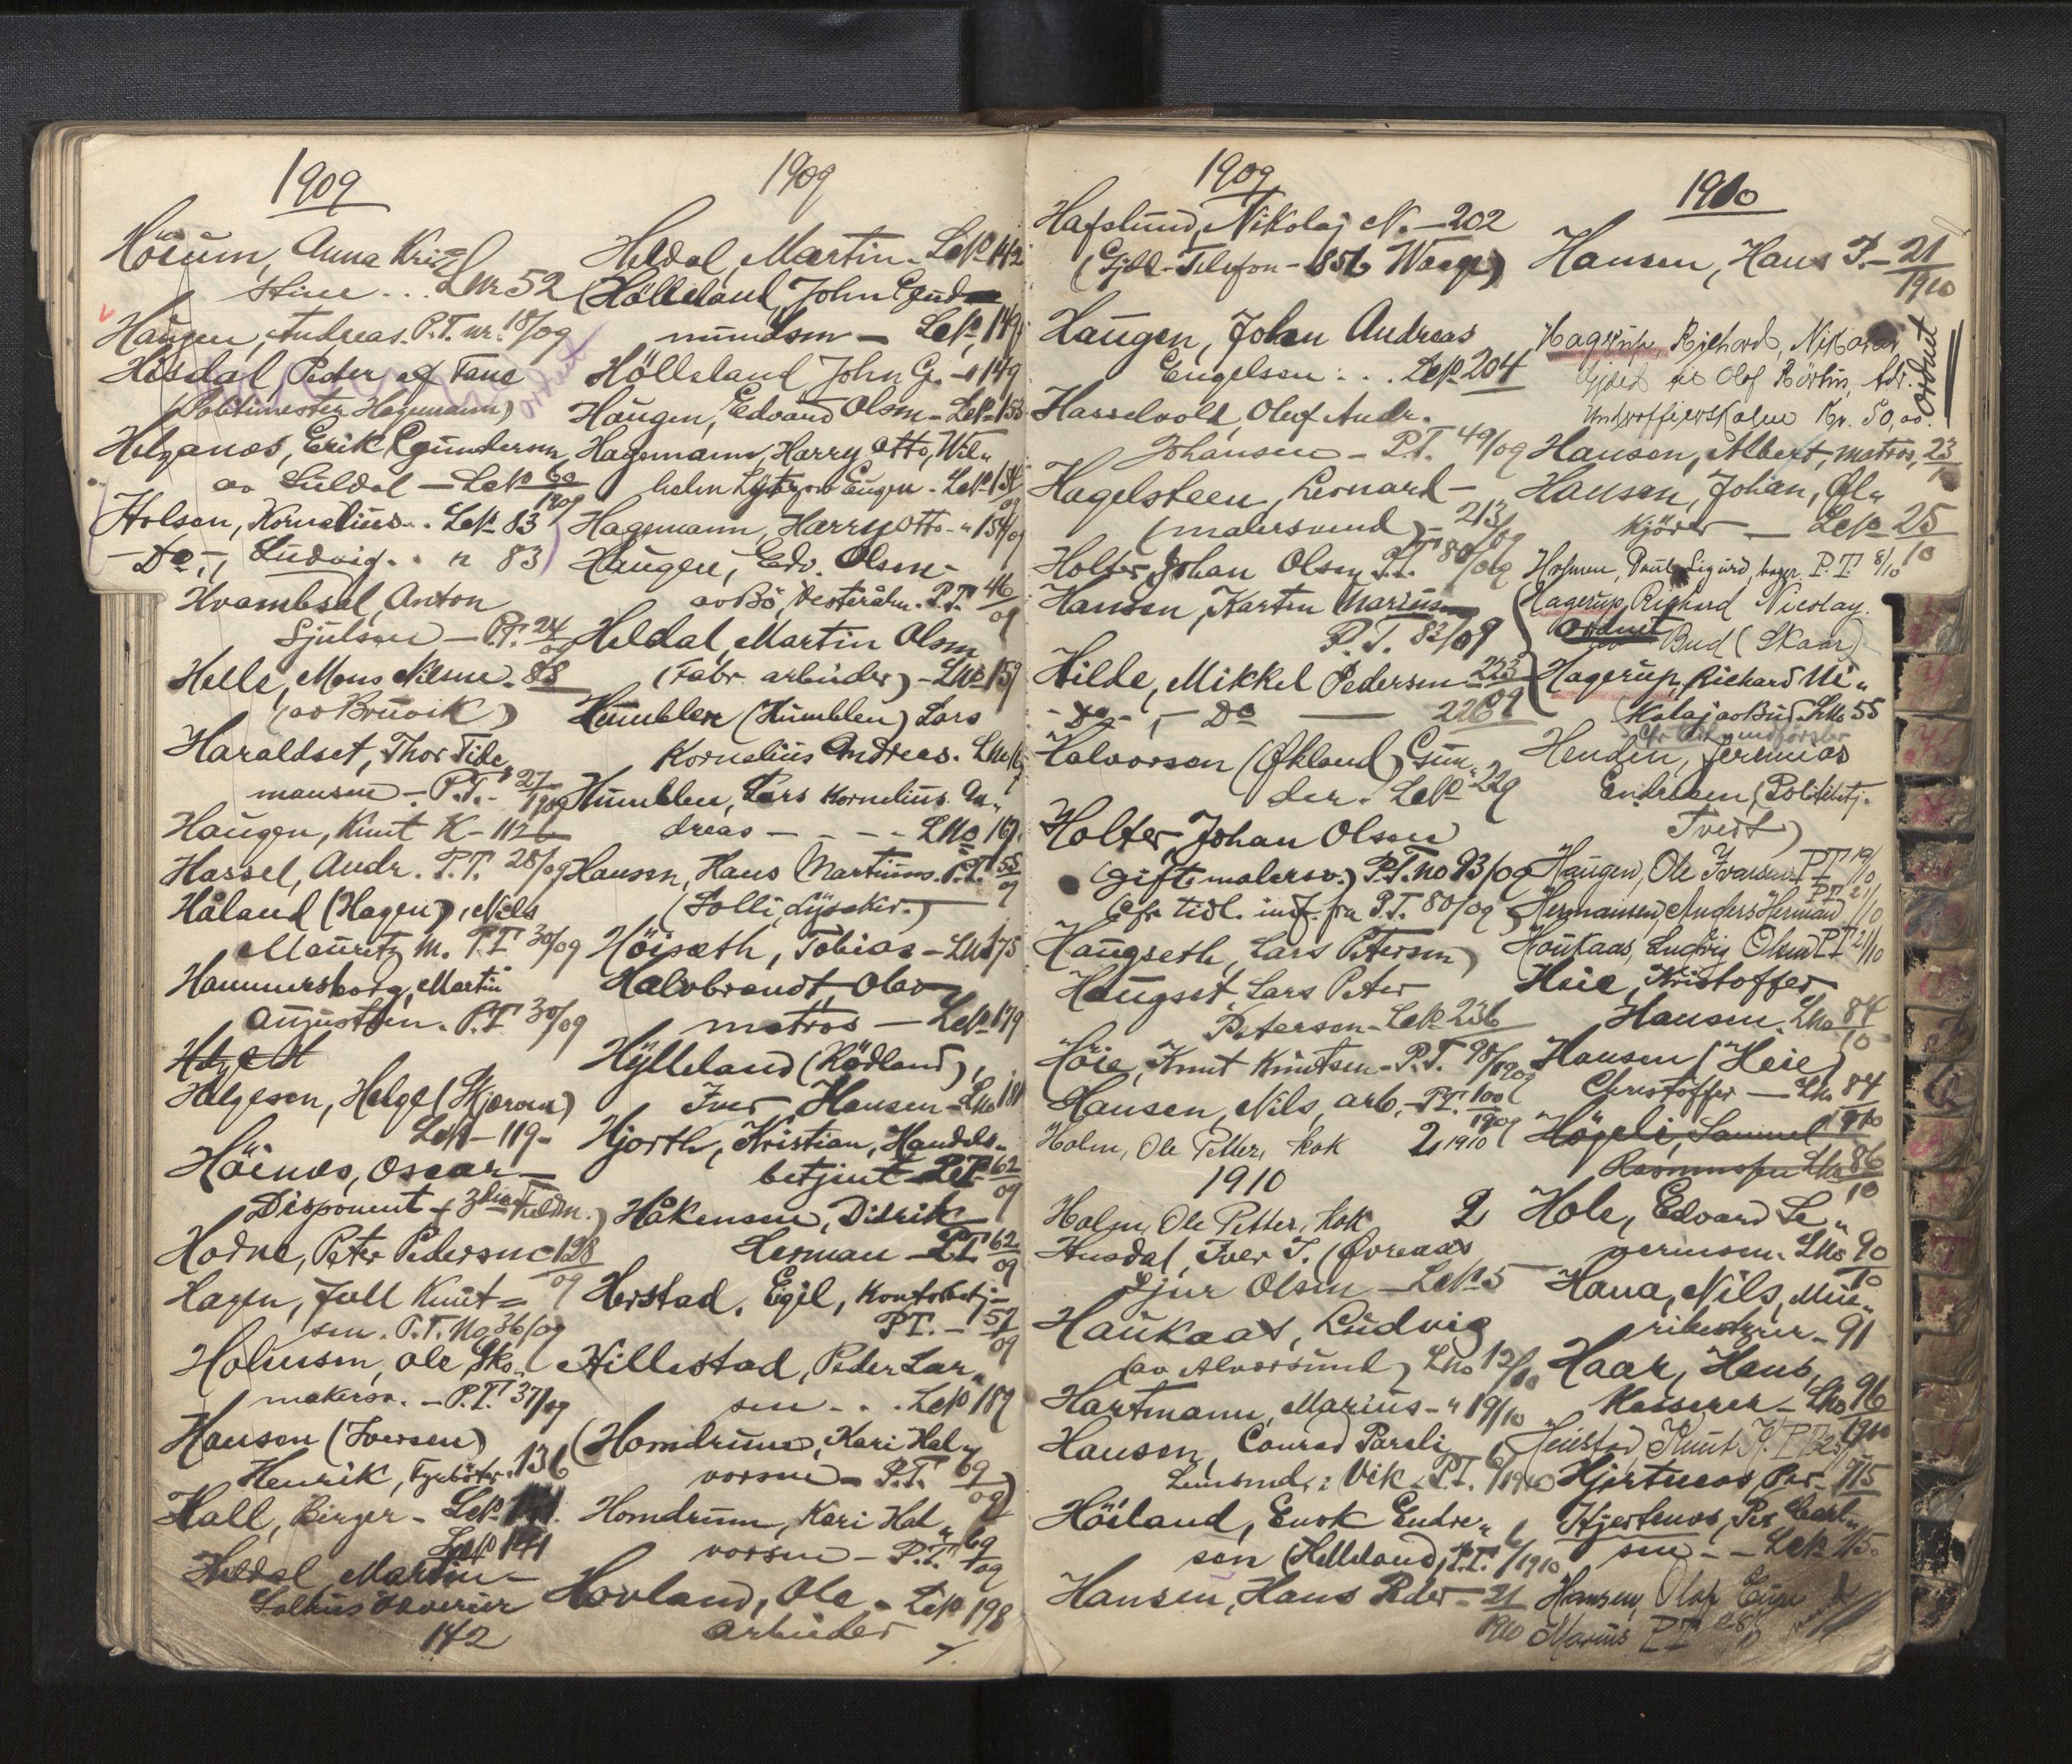 1909
Hösum, Anna Kris=
stine . . . LNr 52
Haugen, Andreas. P.T. nr. 18/09
Hisdal, Peder af Fane
(Politimester Hagemann)
ordnet
Helganes, Erik Gundersen
av Suldal — LNo 60
1909
Holsen, Kornelius . . LNo 83
— Do —, Ludvig . . " 83
Kvambsal, Anton
Sjulsen — P.T. 24/09
Helle, Mons Nilsen. 88
(av Bruvik)
Haraldset, Thor Tide
mansen — P.T. - 27/1909
Haugen, Knut K - 112
Hassel, Andr. P.T. 28/09
Håland (Hagen), Nils
Mauritz M. P.T. 30/09
Hammersborg, Martin
Augustsen. P.T. 30/09
Helgesen, Helge (Skjeraa)
LNo - 119 -
Höines, Oscar —
Disponent
Hodne, Peter Pedersen - 128/09
Hagen, Juell Knut=
sen. P.T. No 36/09
Holmsen, Ole Sko-
makersv. — P.T. 37/09
Hansen (Iversen)
Henrik, Fyrböter. 136
Hall, Birger - LNo 141.
LNo 141
Heldal, Martin -
142
1909
Heldal, Martin - LNo 142
(Hölleland, John Gud
mundsen — LNo 149
Hölleland, John G. - " 149
Haugen, Edvard Olsen - LNo 153
Hagemann, Harry Otto, Wil"
helm Eugen - LNo 154/09
Hagemann, Harry Otto - " 154/09
Haugen, Edv. Olsen -
av Bö, Vesterålen. P.T. 46/09
Heldal, Martin Olsen
(Fabr. arbeider) - LNo 159
Humblen (Humblen) Lars
Kornelius Andreas. LNo 167
Humblen, Lars Kornelius An"
dreas — - - - LNo 167.
Hansen, Hans Martinus. P.T. 55/09
(Solli, Lysaker.)
Höisæth, Tobias - LNo 175
Halvbrandt, Olav
matros — LNo 179
Hylleland (Rödland),
Iver Hansen - LNo 181
Hjorth, Kristian, Handels-
betjent P.T. 62/09
Håkensen, Didrik
Herman — P.T. 62/09
Herstad, Egil, Kontorbetj-
P.T. - 57/09
Hillestad, Peder Lar"
sen - . . LNo 189
(Homdrum, Kari Hal"
vorsen - P.T. 69/09)
Homdrum, Kari Hal"
vorsen — P.T. 69/09
Hovland, Ole - LNo 198
arbeider
1909
Hafslund, Nikolaj N. - 202
Telefon - 1856 Waage)
Haugen, Johan Andreas
Engelsen : . . LNo 204
Hasselvold, Oluf Andr.
Johansen — P.T. 49/09
Hagelsteen, Leonard -
(malersvend) - 213/09
Holter, Johan Olsen P.T. 80/09
Hansen, Karsten Marius
P.T. 82/09
Hilde, Mikkel Pedersen 223
- Do -, - Do — 226/09
Halvorsen (Økland) Gun"
der. LNo 229
Holter, Johan Olsen
(gift. malersv.) P.T. No 93/09
(Cfr. tidl. inf. fra P.T. 80/09)
Haugseth, Lars Petersen)
Haugset, Lars Peter
Petersen - LNo 236
Høie, Knut Knutsen - P.T. 98/1909
Hansen, Nils, arb. - P.T. 100/1909
Holm, Ole Petter, kok 2/1910
1910
Holm, Ole Petter, kok 2
Husdal, Iver J. (Øvreaas
Sjur Olsen — LNo 5
Haukaas, Ludvig
(av Alversund) LNo 12/10
Hartmann, Marius - " 19/10
Hansen, Conrad Pareli
Lensmd. i Vik P.T. 6/1910
Höiland, Enok Endre"
sen (Helleland) P.T. 6/1910
Hansen, Hans Peder - 21/1910
1910
Hansen, Hans P. - 21/1910
Hagerup, Richard, Nikolai
Olaf Adr.
Underoffiersskolen Kr. 50,00.
Ordnet
Hansen, Albert, matros, 23/10
Hansen, Johan, Øl"
kjörer — LNo 25/10
Holmen, Paul Sigurd, P.T. 8/10
Hagerup, Richard Nicolay.
Ordnet Bud (Skaar)
Hagerup, Richard Ni"
kolaj av Bud. LNo 55
Henden, Jeremias
Endresen (Politibetj.
Tvedt)
Haugen, Ole Ivarsen P.T. 19/10
Hermansen, Anders Herman P.T. 21/10
Haukaas, Ludvig Olsen P.T. 21/10
Heie, Kristoffer
Hansen. LNo 84/10
Hansen (Heie)
Christoffer — LNo 84/1910
Högeli, Samuel
Rasmussen LNo 86/10
Hole, Edvard Se"
verinsen. LNo 90/10
Hana, Nils, Mu"
rmester - 91
Haar, Hans,
Kasserer - LNo 96/1910
Heistad, Knut K. P.T. 25/10
Hjertnes, Per - 115
Hjertenes, Per Carl"
sen - - LNo 115.
Hansen, Olaf
Marius P.T. 28/10